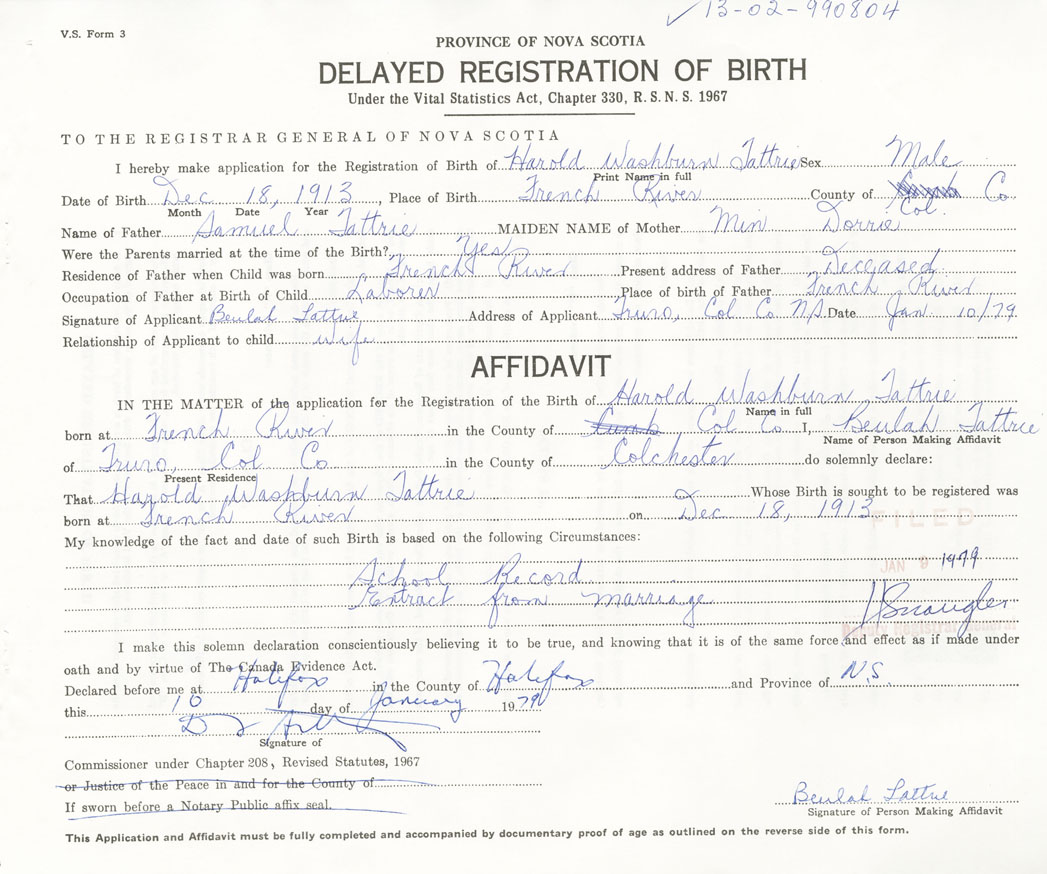 13-02-990804
V.S. Form 3
PROVINCE OF NOVA SCOTIA
DELAYED REGISTRATION OF BIRTH
Under the Vital Statistics Act, Chapter 330, R.S.N.S. 1967
TO THE REGISTRAR GENERAL OF NOVA SCOTIA
I hereby make application for the Registration of Birth of Harold Washburn Tattrie Sex Male
Print Name in full
Date of Birth Dec 18, 1913, Place of Birth French River County of Col. Co
Month Date Year
Name of Father Samuel Tattrie MAIDEN NAME of Mother Min Dorrie
Were the Parents married at the time of the Birth? Yes
Residence of Father when Child was born French River Present address of Father Deceased
Occupation of Father at Birth of Child Laborer Place of birth of Father French River
Signature of Applicant Beulah Tattrie Address of Applicant Truro, Col Co N.S. Date Jan 10/79
Relationship of Applicant to child wife
AFFIDAVIT
IN THE MATTER of the application for the Registration of the Birth of Harold Washburn Tattrie
Name in full
born at French River in the County of Cumb Col Co I, Beulah Tattrie
Name of Person Making Affidavit
of Truro, Col Co in the County of Colchester do solemnly declare:
Present Residence
That Harold Washburn Tattrie Whose Birth is sought to be registered was
born at French River on Dec 18, 1913
FILED
My knowledge of the fact and date of such Birth is based on the following Circumstances:
JAN 9 1979
School Record
Extract from marriage
Deputy Registrar General
I make this solemn declaration conscientiously believing it to be true, and knowing that it is of the same force and effect as if made under
oath and by virtue of The Canada Evidence Act.
Declared before me at Halifax in the County of Halifax and Province of N.S
this 10 day of January 1979
Signature of
Commissioner under Chapter 208, Revised Statutes, 1967
or Justice of the Peace in and for the County of
If sworn before a Notary Public affix seal.
Beulah Tattrie
Signature of Person Making Affidavit
This Application and Affidavit must be fully completed and accompanied by documentary proof of age as outlined on the reverse side of this form.